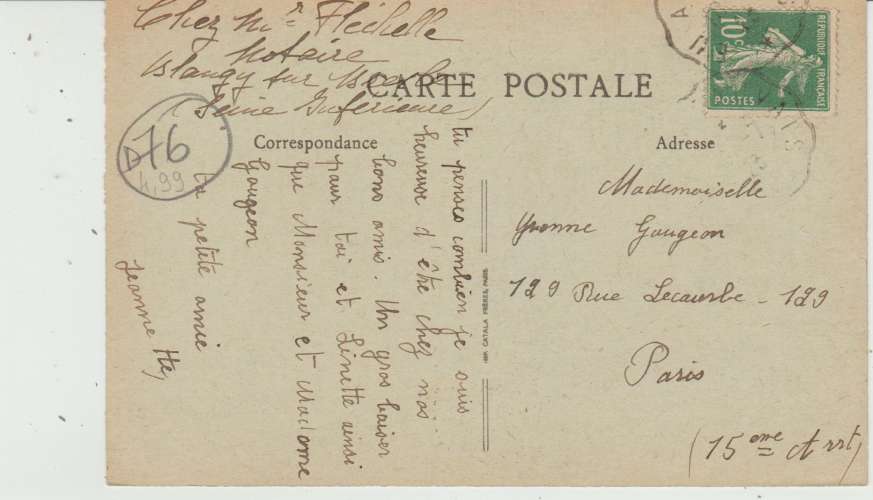 Chez Mr Fléchelle
Notaire
Blangy sur Bresle
(Seine Inférieure)
CARTE POSTALE
Correspondance
Adresse
tu penses combien je suis
heureuse d'être chez nos
bons amis. Un gros baiser
pour toi et Linette ainsi
que Monsieur et Madame
Gougeon
Ta petite amie
Jeanne
IMP. CATALA FRÈRES, PARIS
Mademoiselle
Yvonne Gougeon
129 Rue Lecourbe - 129
Paris
(15eme Arrt)
10c
POSTES
REPUBLIQUE FRANÇAISE
D76
4,99